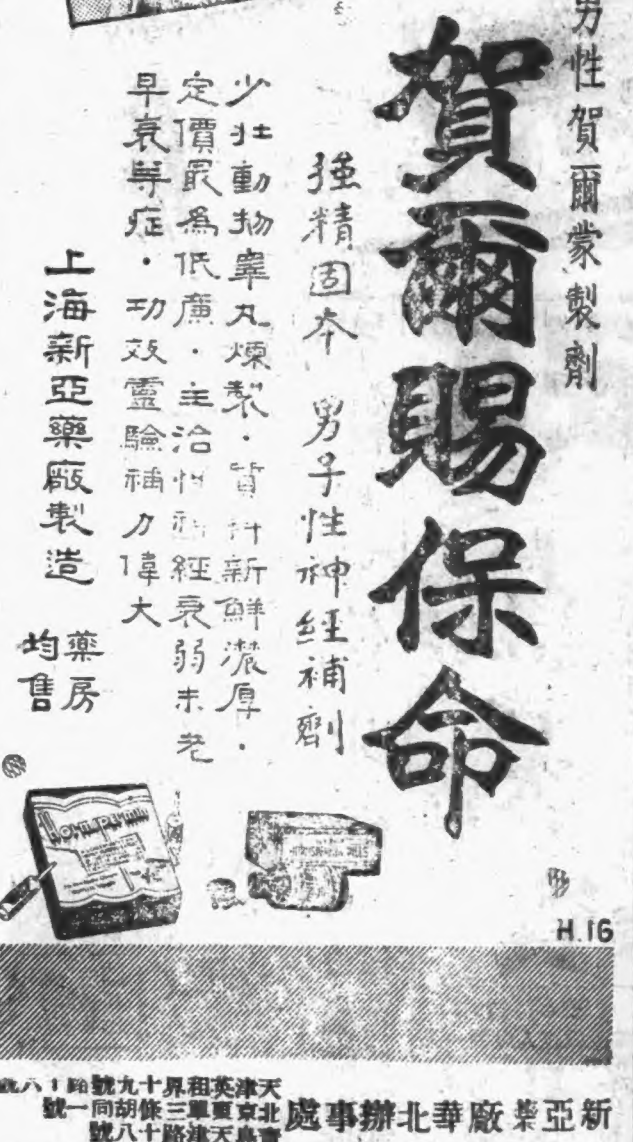 男性賀爾蒙製劑
賀爾賜保命
強精固本 男子性神経補劑
少壮動物睾丸煉製・質料新鮮濃厚・
定價最為低廉・主治性神經衰弱未老
早衰等症・功效靈驗補力偉大
上海新亞藥廠製造
藥房
均售
H.16
新亞藥廠華北辦事處
天津英租界十九號路 八號
北京東單三條胡同一號
青島天津路十八號